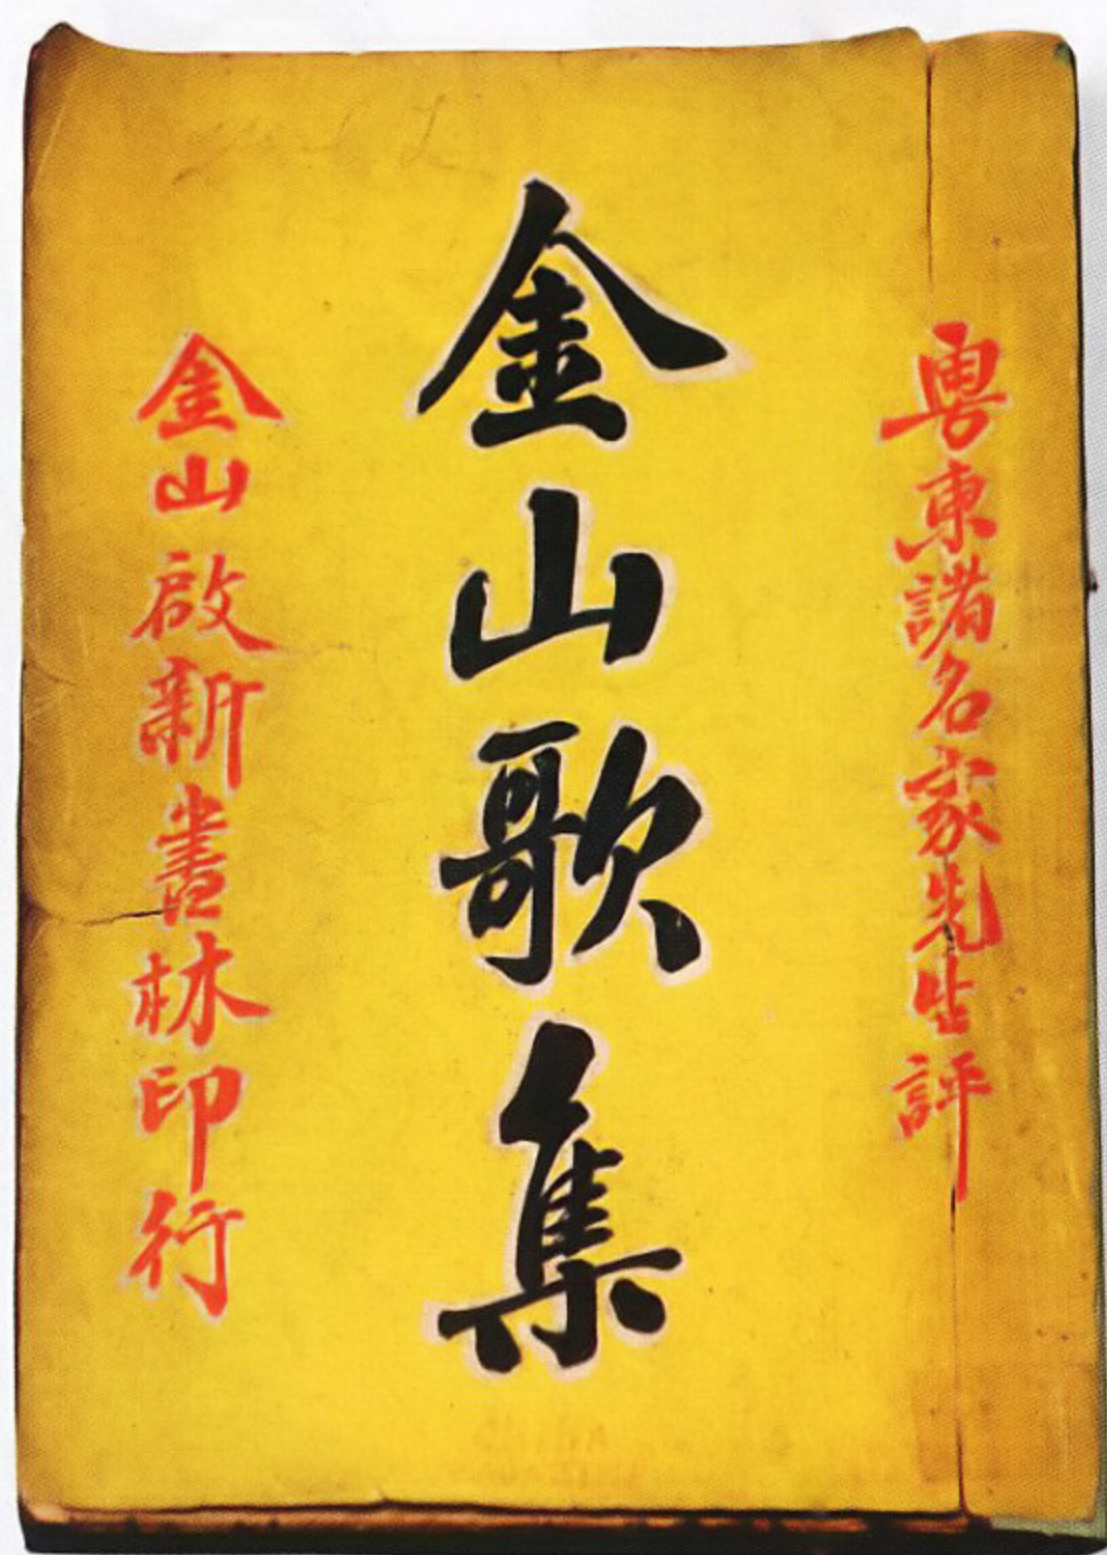 粵東諸名家先生評
金山歌集
金山啟新書林印行